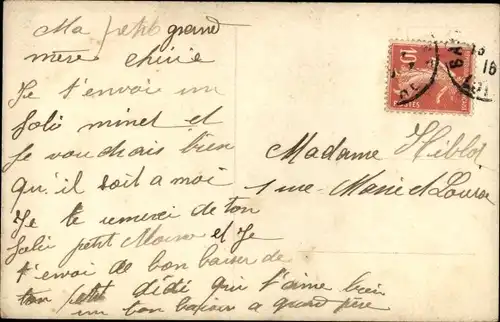 Ma petit grand
mere cherie
Je t'envoi un
Joli minet et
Je voudrais bien
qu'il soit a moi
Je te remerci de ton
Joli petit et Je
t'envoi de bon baiser de
ton petit dédé qui t'aime bien
un bon baiser a grand père
Madame Hiblot
1 rue Marie et Louise
10
POSTES
18